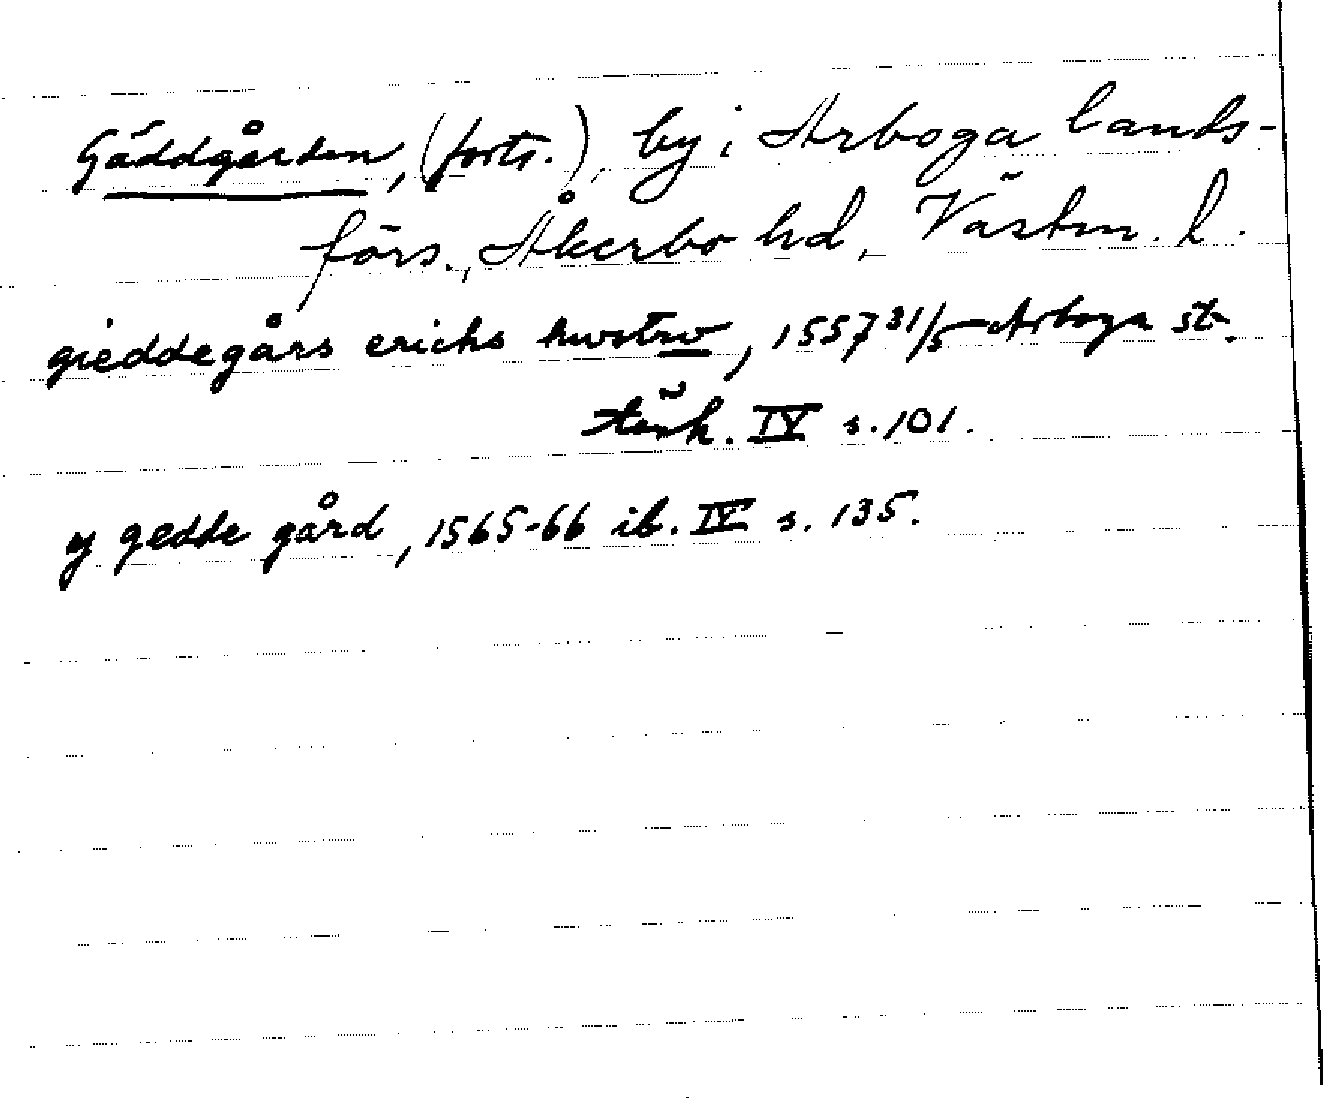 Gäddgården, (forts.), by i Arboga lands-
förs., Åkerbo hd, Västm. l.
gieddegårs erichs hwstrw, 1557 31/5 Arboga st.
tänk. IV s. 101.
y gedde gård, 1565-66 ib. IV s. 135.